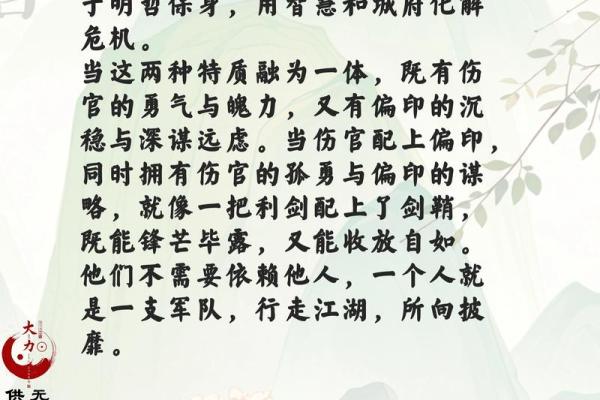 于明哲保身，用智慧和城府化解
危机。
当这两种特质融为一体，既有伤
官的勇气与魄力，又有偏印的沉
稳与深谋远虑。当伤官配上偏印，
同时拥有伤官的孤勇与偏印的谋
略，就像一把利剑配上了剑鞘，
既能锋芒毕露，又能收放自如。
他们不需要依赖他人，一个人就
是一支军队，行走江湖，所向披
靡。
大力
供无